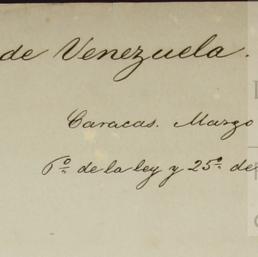 de Venezuela.
Caracas. Marzo
6º de la ley y 25º de